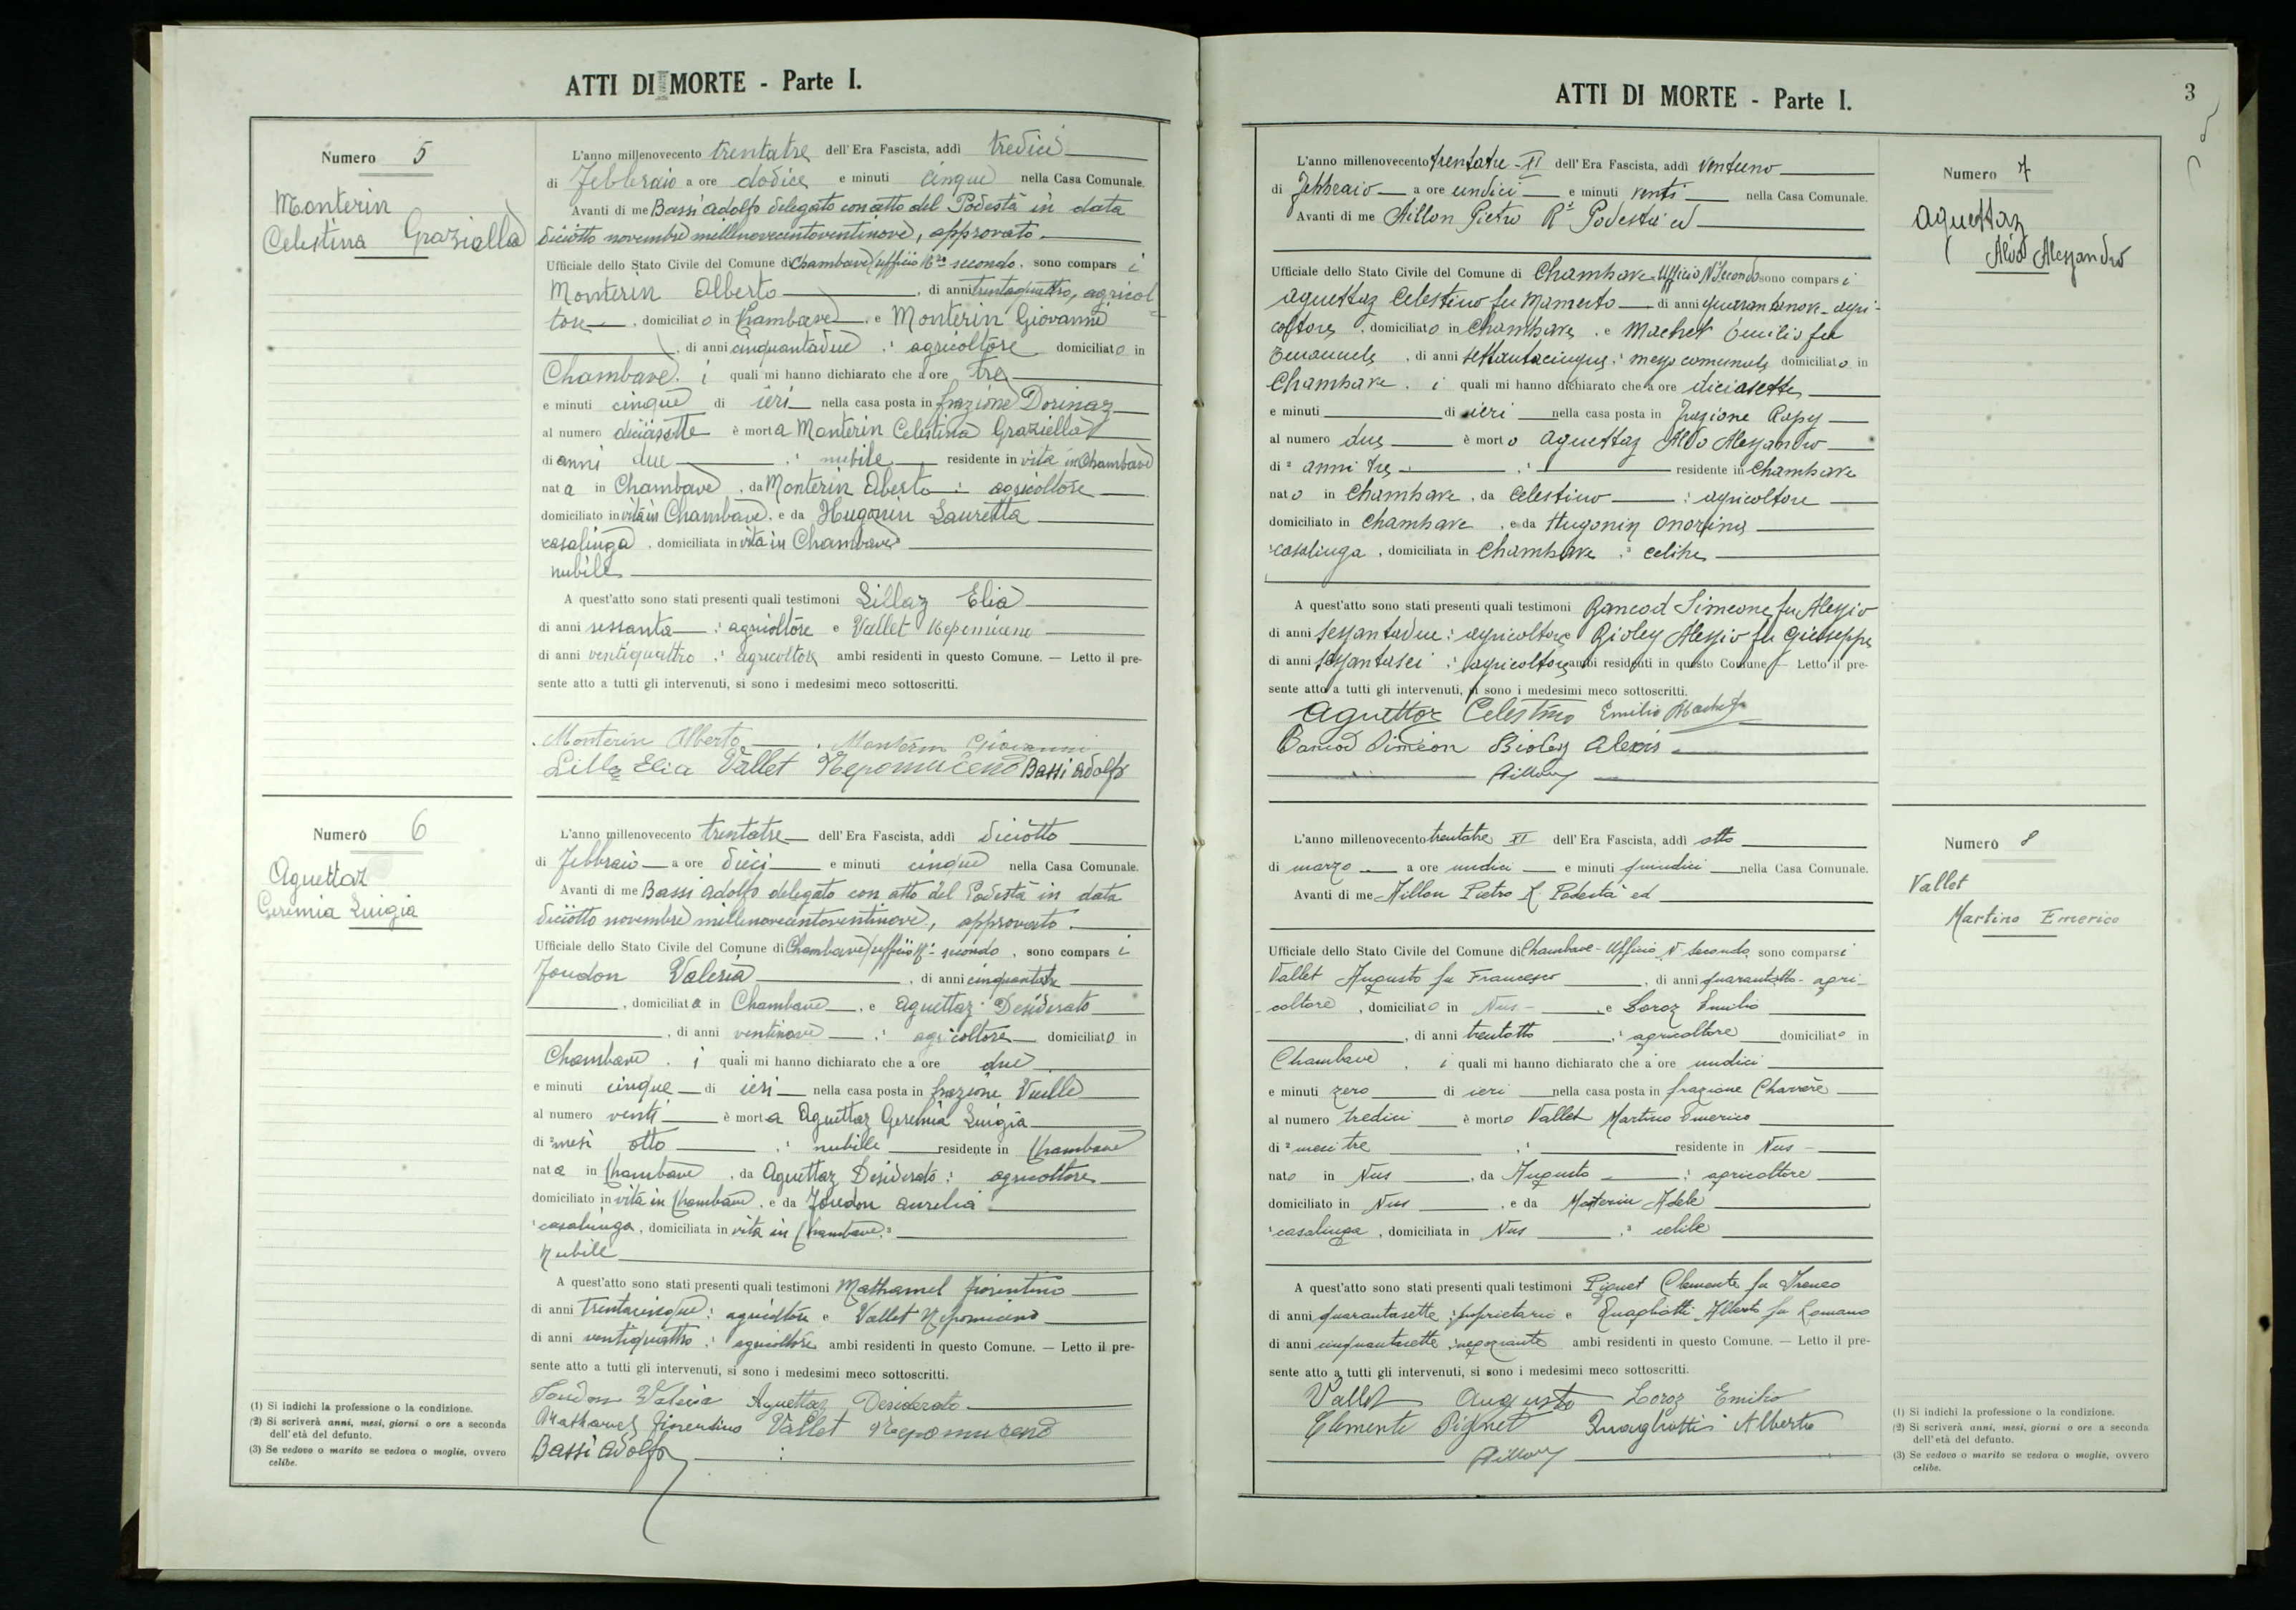 ATTI DI MORTE - Parte I.
Numero 5
Monterin
Celestina Graziella
L'anno millenovecento trentatre dell' Era Fascista, addì tredici
di Febbraio a ore dodici e minuti cinque nella Casa Comunale.
Avanti di me Bassi Adolfo delegato con atto del Podestà in data
diciotto novembre millenovecentoventinove, approvato.
Ufficiale dello Stato Civile del Comune di Chambave (ufficio secondo, sono compars i
Monterin Alberto, di anni trentaquattro, agricol=
tore, domiciliato in Chambave, e Monterin Giovanni
, di anni cinquantadue : agricoltore domiciliato in
Chambave. i quali mi hanno dichiarato che a ore tre
e minuti cinque di ieri nella casa posta in frazione Dorinaz
al numero diciasette è morta Monterin Celestina Graziella
di anni due : nubile residente in vita in Chambave
nata in Chambave, da Monterin Alberto : agricoltore
domiciliato in vita in Chambave, e da Hugonin Lauretta
casalinga, domiciliata in vita in Chambave
nubile
A quest'atto sono stati presenti quali testimoni Lillaz Elia
di anni sessanta : agricoltore e Vallet Nepomuceno
di anni ventiquattro : agricoltore ambi residenti in questo Comune. — Letto il pre-
sente atto a tutti gli intervenuti, si sono i medesimi meco sottoscritti.
Monterin Alberto Monterin Giovanni
Lillaz Elia Vallet Nepomuceno Bassi Adolfo
Numero 6
Aguettaz
Geremia Luigia
L'anno millenovecento trentatre dell' Era Fascista, addì diciotto
di Febbraio a ore dieci e minuti cinque nella Casa Comunale.
Avanti di me Bassi Adolfo delegato con atto del Podestà in data
diciotto novembre millenovecentoventinove, approvato.
Ufficiale dello Stato Civile del Comune di Chambave (ufficio secondo, sono compars i
Joudon Valeria, di anni cinquantatre
, domiciliata in Chambave, e Aguettaz Desiderato
, di anni ventinove : agricoltore domiciliato in
Chambave. i quali mi hanno dichiarato che a ore due
e minuti cinque di ieri nella casa posta in frazione Vuille
al numero venti è morta Aguettaz Geremia Luigia
di mesi otto : nubile residente in Chambave
nata in Chambave, da Aguettaz Desiderato : agricoltore
domiciliato in vita in Chambave, e da Joudon Aurelia
casalinga, domiciliata in vita in Chambave.
Nubile
A quest'atto sono stati presenti quali testimoni Mathamel Fiorentino
di anni trentacinque : agricoltore e Vallet Nepomuceno
di anni ventiquattro : agricoltore ambi residenti in questo Comune. — Letto il pre-
sente atto a tutti gli intervenuti, si sono i medesimi meco sottoscritti.
Joudon Valeria Aguettaz Desiderato
Fiorentino Vallet Nepomuceno
Bassi Adolfo
(1) Si indichi la professione o la condizione.
(2) Si scriverà anni, mesi, giorni o ore a seconda
dell'età del defunto.
(3) Se vedovo o marito se vedova o moglie, ovvero
celibe.
ATTI DI MORTE - Parte I.
3
Numero 7
Aguettaz
Aldo Alessandro
L'anno millenovecento trentatre - XI dell' Era Fascista, addì ventuno
di Febbraio a ore undici e minuti venti nella Casa Comunale.
Avanti di me Aillon Pietro Podestà ed
Ufficiale dello Stato Civile del Comune di Chambave Ufficio N Secondo sono compars i
Aguettaz Celestino fu Mamerto di anni quarantanove - agri-
coltore, domiciliato in Chambave, e Machet Emilio fu
Emanuele, di anni settantacinque : messo comunale domiciliato in
Chambave. i quali mi hanno dichiarato che a ore diciasette
e minuti di ieri nella casa posta in frazione Rapy
al numero due è morto Aguettaz Aldo Alessandro
di anni tre : residente in Chambave
nato in Chambave, da Celestino : agricoltore
domiciliato in Chambave, e da Hugonin Onorina
casalinga, domiciliata in Chambave : celibe
A quest'atto sono stati presenti quali testimoni Bancod Simeone fu Alessio
di anni sessantadue : agricoltore e Bioley Alessio fu Giuseppe
di anni sessantasei : agricoltore ambi residenti in questo Comune — Letto il pre-
sente atto a tutti gli intervenuti, si sono i medesimi meco sottoscritti.
Aguettaz Celestino Emilio Machet
Bancod Siméon Bioley Alexis
Aillon
Numero 8
Vallet
Martino Emerico
L'anno millenovecento trentatre XI dell' Era Fascista, addì otto
di marzo a ore undici e minuti quindici nella Casa Comunale.
Avanti di me Aillon Pietro R Podestà ed
Ufficiale dello Stato Civile del Comune di Chambave - Ufficio N secondo sono compars i
Vallet Augusto fu Francesco, di anni quarantotto - agri-
coltore, domiciliato in Nus - e Loroz Emilio
, di anni trentotto : agricoltore domiciliato in
Chambave, i quali mi hanno dichiarato che a ore undici
e minuti zero di ieri nella casa posta in frazione Charrère
al numero tredici è morto Vallet Martino Emerico
di mesi tre : residente in Nus -
nato in Nus, da Augusto : agricoltore
domiciliato in Nus, e da Adele
casalinga, domiciliata in Nus : celibe
A quest'atto sono stati presenti quali testimoni Pignet Clemente fu Ireneo
di anni quarantasette : proprietario e Quagliotti Alberto fu Romano
di anni cinquantasette : negoziante ambi residenti in questo Comune. — Letto il pre-
sente atto a tutti gli intervenuti, si sono i medesimi meco sottoscritti.
Vallet Augusto Loroz Emilio
Clemente Pignet Quagliotti Alberto
Aillon
(1) Si indichi la professione o la condizione.
(2) Si scriverà anni, mesi, giorni o ore a seconda
dell'età del defunto.
(3) Se vedovo o marito se vedova o moglie, ovvero
celibe.